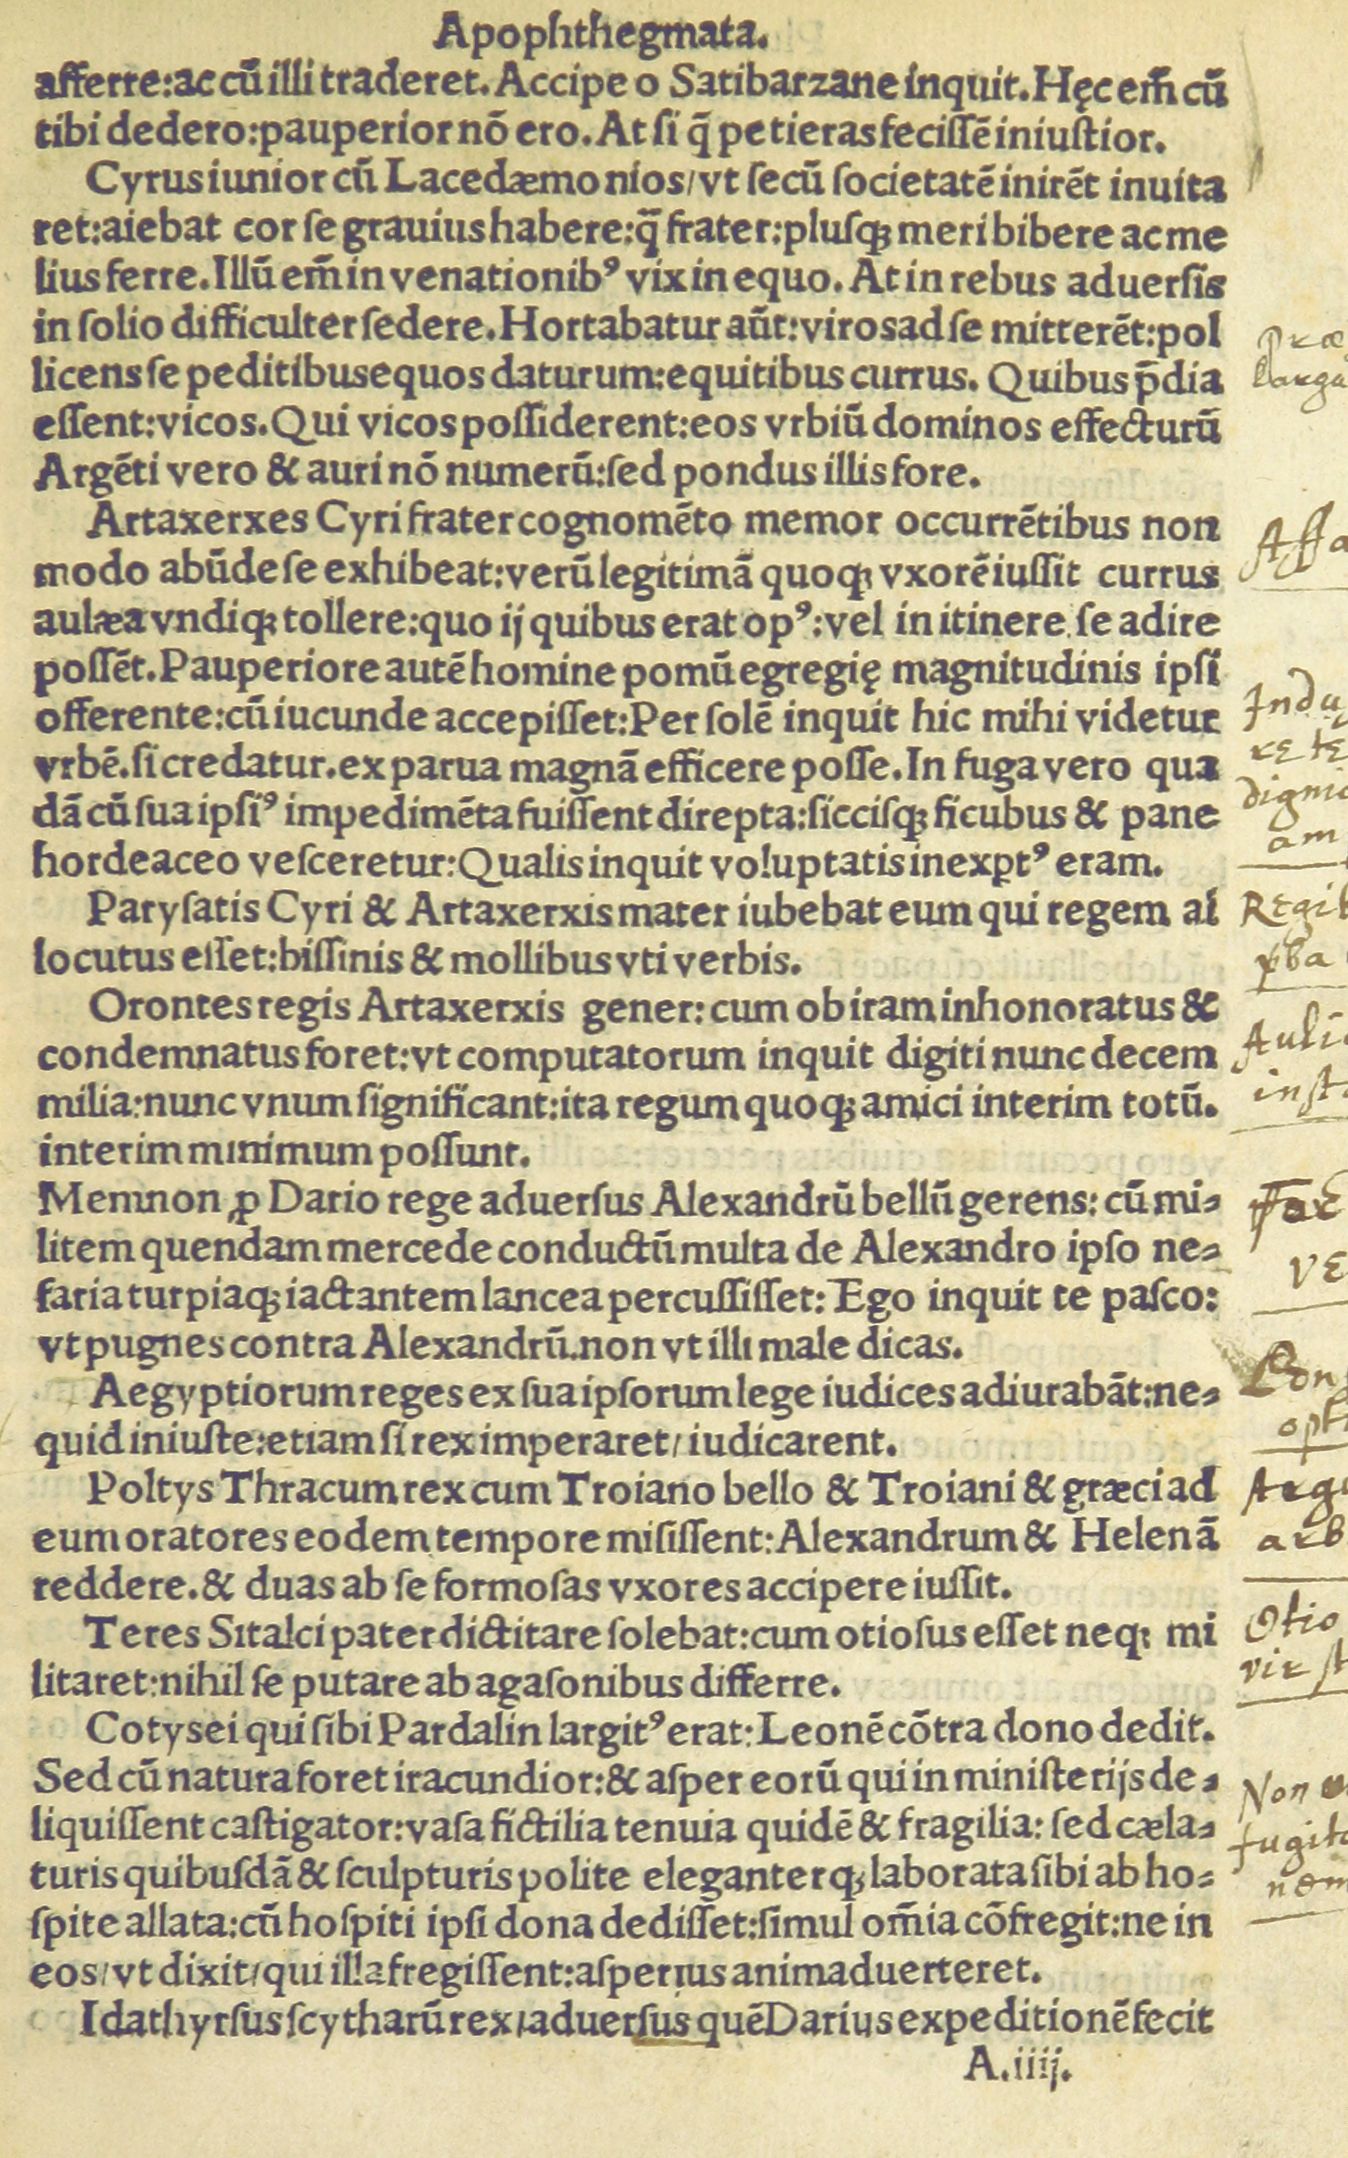 Apophthegmata.
afferre:ac cū illi traderet. Accipe o Satibarzane inquit. Hęc em̄ cū
tibi dedero:pauperior nō ero. At si q̄ petieras fecissē iniustior.
Cyrus iunior cū Lacedæmonios/vt secū societatē inirēt inuita
ret:aiebat cor se grauius habere:q̄ frater:plusqꝫ meri bibere ac me
lius ferre. Illū em̄ in venationibꝰ vix in equo. At in rebus aduersis
in solio difficulter sedere. Hortabatur aūt:viros ad se mitterēt:pol
licens se peditibus equos daturum:equitibus currus. Quibus p̄dia
essent:vicos. Qui vicos possiderent:eos vrbiū dominos effecturū
Argēti vero & auri nō numerū:sed pondus illis fore.
Artaxerxes Cyri frater cognomēto memor occurrētibus non
modo abūde se exhibeat:verū legitimā quoqꝫ vxorē iussit currus
aulæa vndiqꝫ tollere:quo ij quibus erat opꝰ:vel in itinere se adire
possēt. Pauperiore autē homine pomū egregię magnitudinis ipsi
offerente:cū iucunde accepisset:Per solē inquit hic mihi videtur
vrbē.si credatur.ex parua magnā efficere posse. In fuga vero qua
dā cū sua ipsiꝰ impedimēta fuissent direpta:siccisqꝫ ficubus & pane
hordeaceo vesceretur:Qualis inquit voluptatis inexꝑtꝰ eram.
Parysatis Cyri & Artaxerxis mater iubebat eum qui regem al
locutus esset:bissinis & mollibus vti verbis.
Orontes regis Artaxerxis gener:cum ob iram inhonoratus &
condemnatus foret:vt computatorum inquit digiti nunc decem
milia:nunc vnum significant:ita regum quoqꝫ amici interim totū.
interim minimum possunt.
Memnon ꝓ Dario rege aduersus Alexandrū bellū gerens:cū mi⸗
litem quendam mercede conductū multa de Alexandro ipso ne⸗
faria turpiaqꝫ iactantem lancea percussisset: Ego inquit te pasco:
vt pugnes contra Alexandrū.non vt illi male dicas.
Aegyptiorum reges ex sua ipsorum lege iudices adiurabāt:ne⸗
quid iniuste:etiam si rex imperaret/iudicarent.
Poltys Thracum rex cum Troiano bello & Troiani & græci ad
eum oratores eodem tempore misissent:Alexandrum & Helenā
reddere.& duas ab se formosas vxores accipere iussit.
Teres Sitalci pater dictitare solebat:cum otiosus esset neqꝫ mi
litaret:nihil se putare ab agasonibus differre.
Cotys ei qui sibi Pardalin largitꝰ erat:Leonē cōtra dono dedit.
Sed cū natura foret iracundior:& asper eorū qui in ministerijs de⸗
liquissent castigator:vasa fictilia tenuia quidē & fragilia: sed cæla⸗
turis quibusdā & sculpturis polite eleganterqꝫ laborata sibi ab ho⸗
spite allata:cū hospiti ipsi dona dedisset:simul om̄ia cōfregit:ne in
eos/vt dixit/qui illa fregissent:asperius animaduerteret.
Idathyrsus scytharū rex/aduersus quē Darius expeditionē fecit
A.iiij.
Indu
dignic
am
Regib
Auli
inst
ve
opti
Otio
vir st
Non
fugit